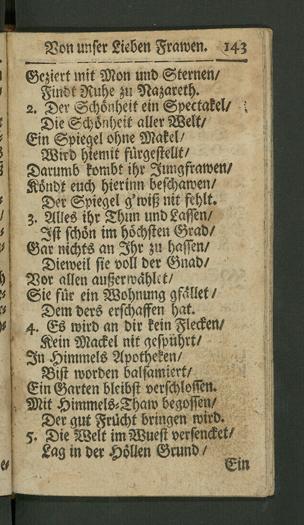 Von unser Lieben Frawen. 143
Geziert mit Mon und Sternen/
Findt Ruhe zu Nazareth.
2. Der Schönheit ein Spectakel/
Die Schönheit aller Welt/
Ein Spiegel ohne Makel/
Wird hiemit fürgestellt/
Darumb kombt ihr Jungfrawen/
Köndt euch hierinn beschawen/
Der Spiegel g'wiß nit fehlt.
3. Alles ihr Thun und Lassen/
Ist schön im höchsten Grad/
Gar nichts an Ihr zu hassen/
Dieweil sie voll der Gnad/
Vor allen außerwählet/
Sie für ein Wohnung gfället/
Dem ders erschaffen hat.
4. Es wird an dir kein Flecken/
Kein Mackel nit gespührt/
In Himmels Apotheken/
Bist worden balsamiert/
Ein Garten bleibst verschlossen.
Mit Himmels-Thaw begossen/
Der gut Frücht bringen wird.
5. Die Welt im Wuest versencket/
Lag in der Höllen Grund/
Ein